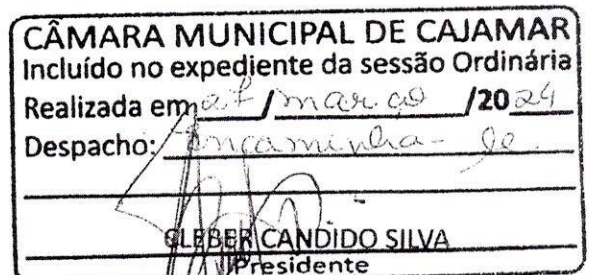 CÂMARA MUNICIPAL DE CAJAMAR
Incluído no expediente da sessão Ordinária
Realizada em / março /2024
Despacho: Encaminha-se
CLEBER CANDIDO SILVA
Presidente